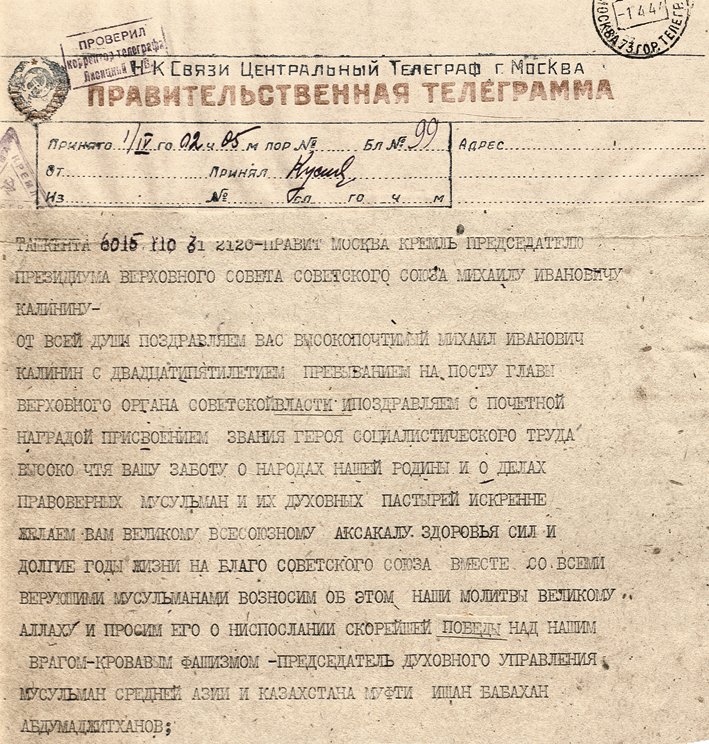 ПРОВЕРИЛ
корректор телеграфа
МОСКВА 73 ГОР. ТЕЛЕГР.
-1.4.4
Н К СВЯЗИ ЦЕНТРАЛЬНЫЙ ТЕЛЕГРАФ Г. МОСКВА
ПРАВИТЕЛЬСТВЕННАЯ ТЕЛЕГРАММА
ПРИНЯТО 1/IV ГО 02 Ч 05 М ПОР № БЛ № 99
АДРЕС
ОТ ПРИНЯЛ
ИЗ № СЛ ГО Ч М
ТАШКЕНТА 6015 110 31 2120-ПРАВИТ МОСКВА КРЕМЛЬ ПРЕДСЕДАТЕЛЮ
ПРЕЗИДИУМА ВЕРХОВНОГО СОВЕТА СОВЕТСКОГО СОЮЗА МИХАИЛУ ИВАНОВИЧУ
КАЛИНИНУ-
ОТ ВСЕЙ ДУШИ ПОЗДРАВЛЯЕМ ВАС ВЫСОКОПОЧТИМЫЙ МИХАИЛ ИВАНОВИЧ
КАЛИНИН С ДВАДЦАТИПЯТИЛЕТИЕМ ПРЕБЫВАНИЕМ НА ПОСТУ ГЛАВЫ
ВЕРХОВНОГО ОРГАНА СОВЕТСКОЙВЛАСТИ ИПОЗДРАВЛЯЕМ С ПОЧЕТНОЙ
НАГРАДОЙ ПРИСВОЕНИЕМ ЗВАНИЯ ГЕРОЯ СОЦИАЛИСТИЧЕСКОГО ТРУДА
ВЫСОКО ЧТЯ ВАШУ ЗАБОТУ О НАРОДАХ НАШЕЙ РОДИНЫ И О ДЕЛАХ
ПРАВОВЕРНЫХ МУСУЛЬМАН И ИХ ДУХОВНЫХ ПАСТЫРЕЙ ИСКРЕННЕ
ЖЕЛАЕМ ВАМ ВЕЛИКОМУ ВСЕСОЮЗНОМУ АКСАКАЛУ ЗДОРОВЬЯ СИЛ И
ДОЛГИЕ ГОДЫ ЖИЗНИ НА БЛАГО СОВЕТСКОГО СОЮЗА ВМЕСТЕ СО ВСЕМИ
ВЕРУЮЩИМИ МУСУЛЬМАНАМИ ВОЗНОСИМ ОБ ЭТОМ НАШИ МОЛИТВЫ ВЕЛИКОМУ
АЛЛАХУ И ПРОСИМ ЕГО О НИСПОСЛАНИИ СКОРЕЙШЕЙ ПОБЕДЫ НАД НАШИМ
ВРАГОМ-КРОВАВЫМ ФАШИЗМОМ -ПРЕДСЕДАТЕЛЬ ДУХОВНОГО УПРАВЛЕНИЯ
МУСУЛЬМАН СРЕДНЕЙ АЗИИ И КАЗАХСТАНА МУФТИ ИШАН БАБАХАН
АБДУМАДЖИТХАНОВ;